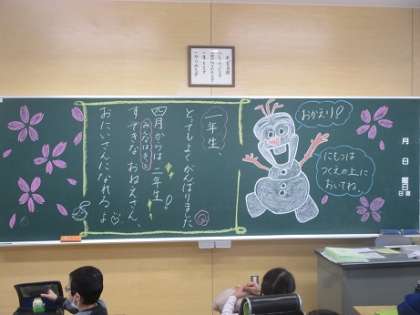 一年生、
とってもよくがんばりました
四月からは二年生！
みんなはきっと
すてきなおねえさん、
おにいさんになれるよ
おかえり！
にもつは
つくえの上に
おいてね。
月
日
曜日